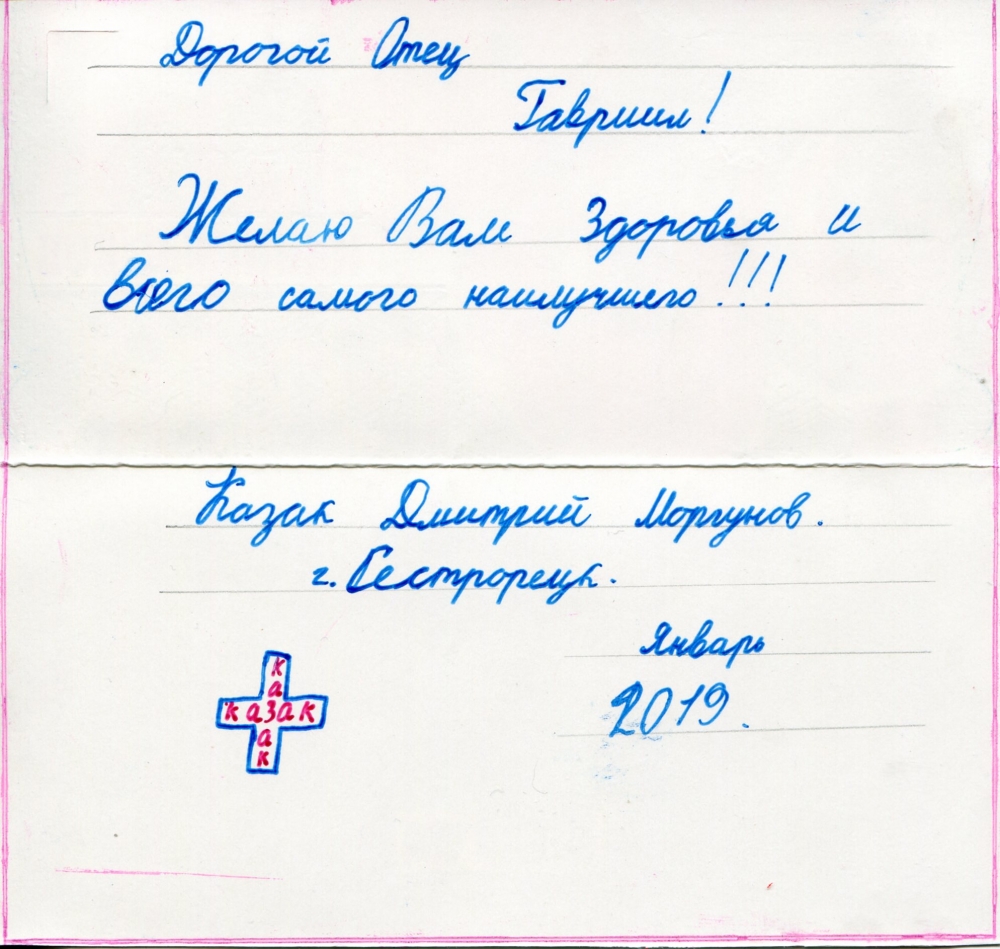 Дорогой Отец
Гавриил!
Желаю Вам Здоровья и
всего самого наилучшего!!!
Казак Дмитрий Моргунов.
г. Сестрорецк.
Январь
2019.
к
а
казак
а
к